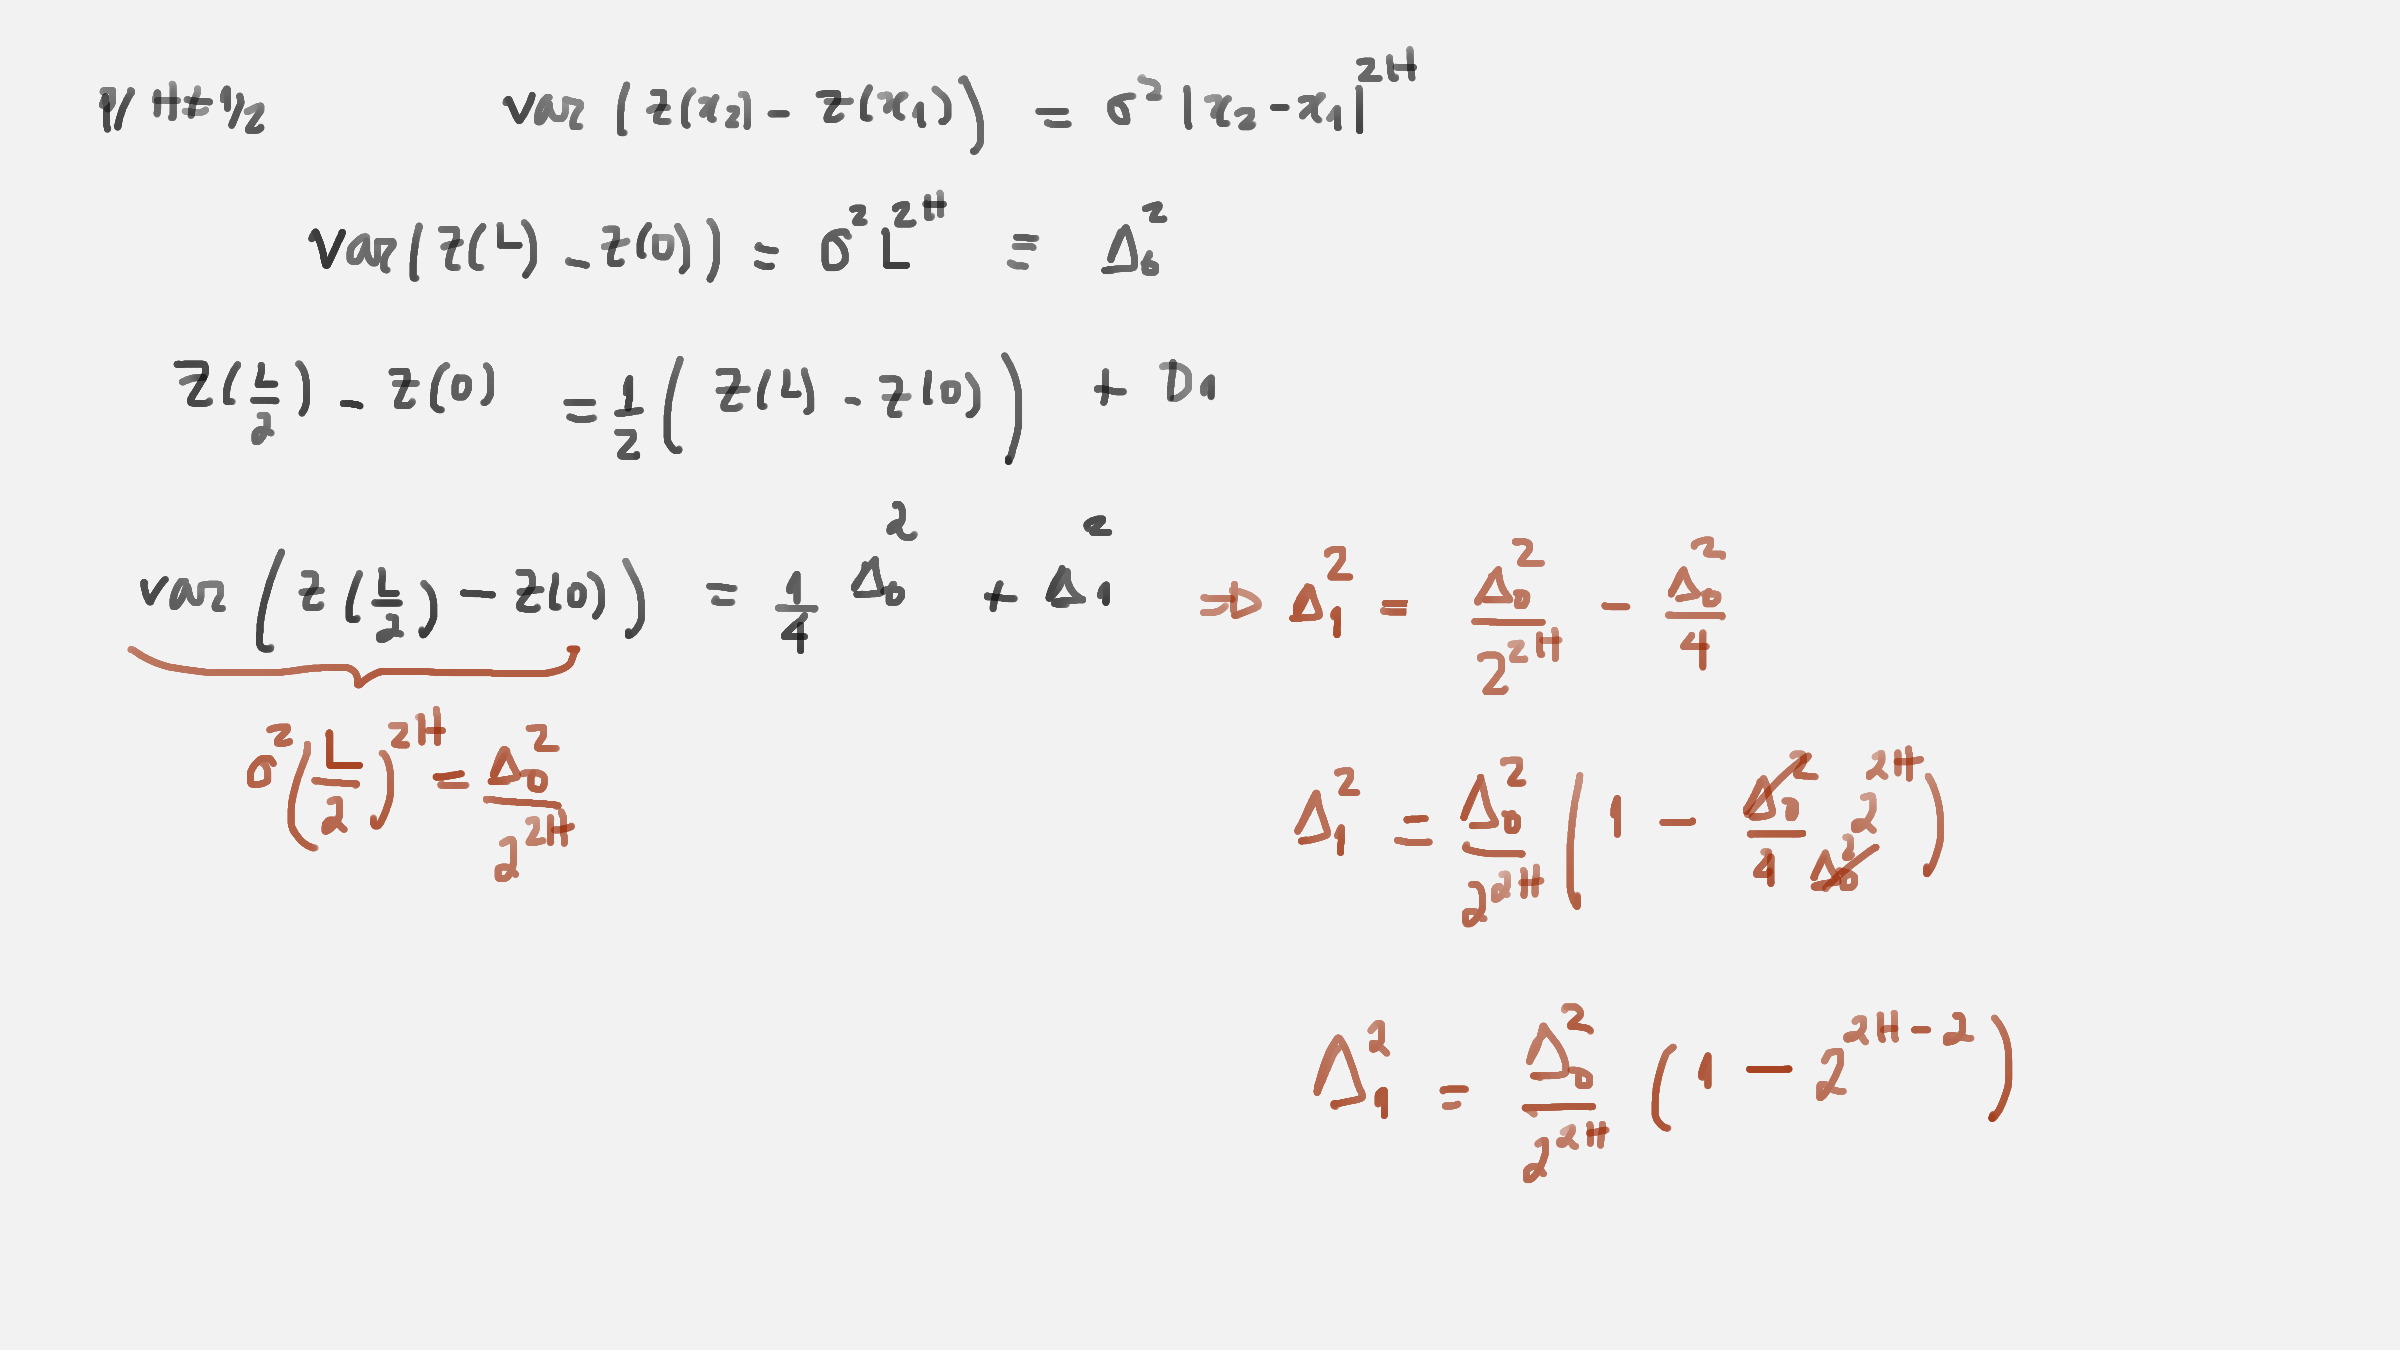 p/ H≠1/2 var (Z(x₂) - Z(x₁)) = σ² |x₂ - x₁|^2H
Var(Z(L) - Z(0)) = σ² L^2H ≡ Δ₀²
Z(L/2) - Z(0) = 1/2 (Z(L) - Z(0)) + D₁
var (Z(L/2) - Z(0)) = 1/4 Δ₀² + Δ₁² ⇒ Δ₁² = Δ₀²/2^2H - Δ₀²/4
σ² (L/2)^2H = Δ₀²/2^2H
Δ₁² = Δ₀²/2^2H (1 - Δ₀² 2^2H / 4 Δ₀²)
Δ₁² = Δ₀²/2^2H (1 - 2^2H-2)